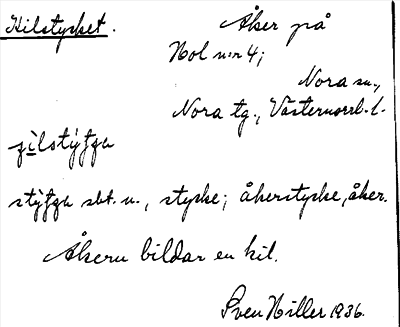 Kilstycket. Åker på
Hol n:r 4;
Nora sn.,
Nora tg., Västernorrl. l.
stycke; åkerstycke, åker.
Åkern bildar en kil.
Sven Hiller 1936.